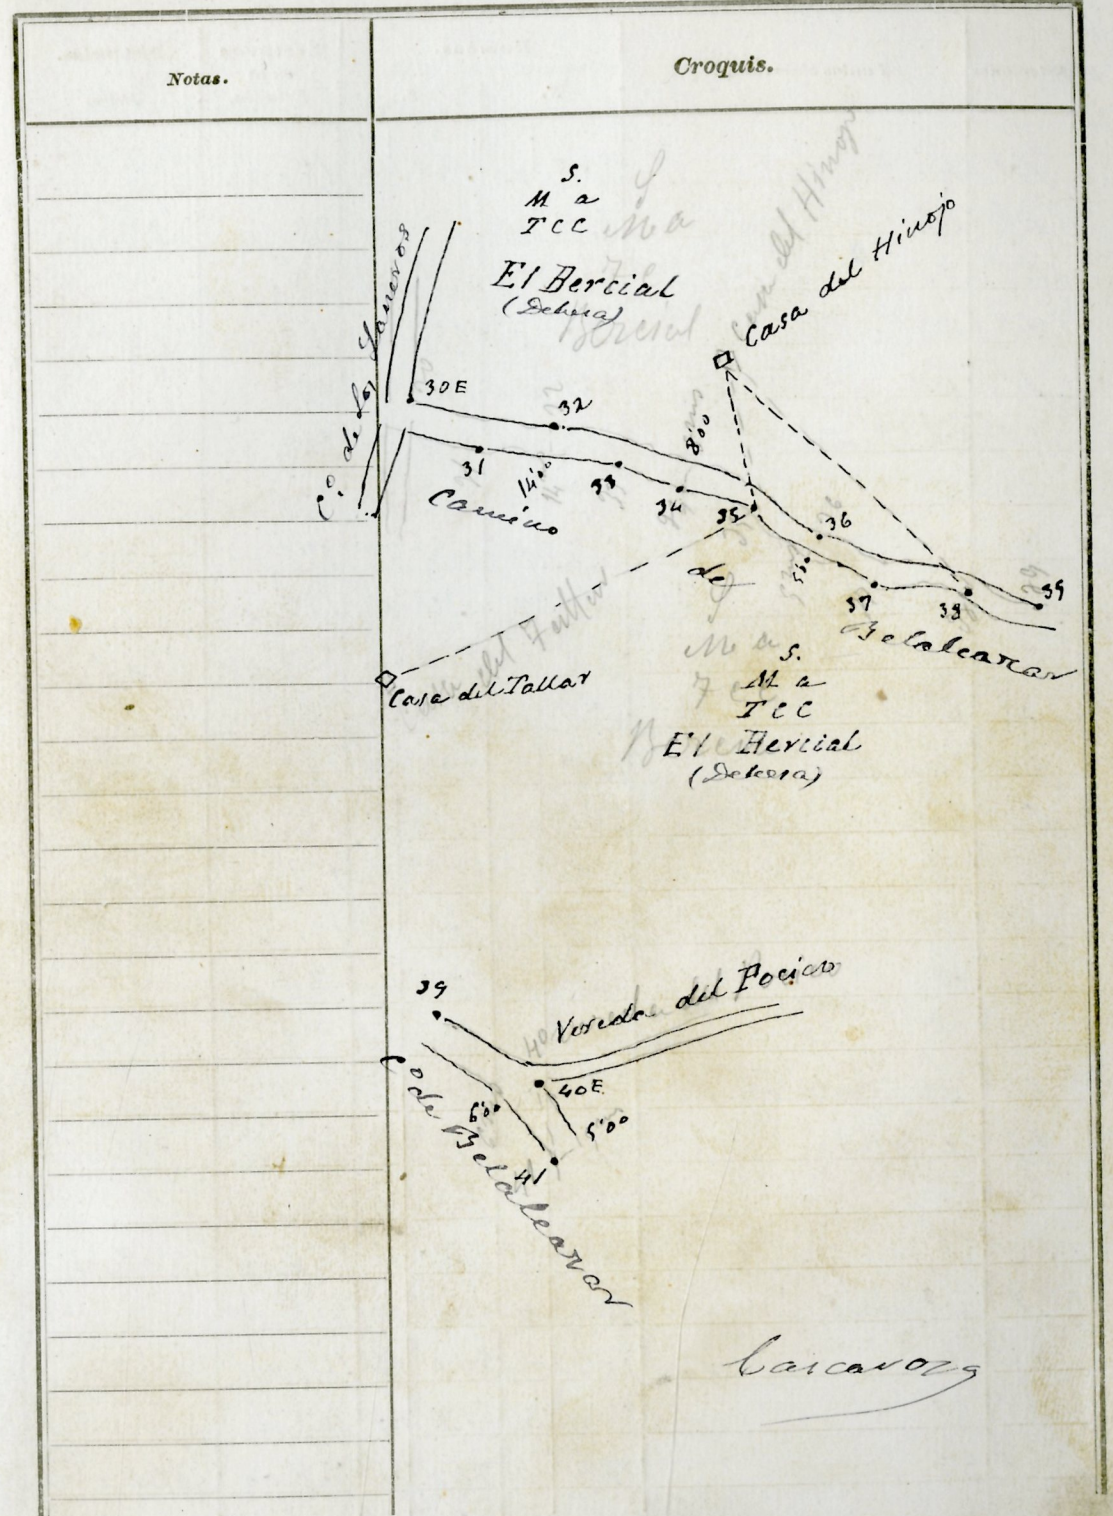 Notas.
Croquis.
S.
M a
T C C
El Bercial
(Dehesa)
Casa del Hinojo
Cº de Los
30E
32
31
14'00
33
8'00
34
35
36
5'00
37
38
39
Camino
de
Belalcazar
Casa del Tallar
S.
M a
T C C
El Bercial
(Dehesa)
39
Vereda del Pocico
40E
6'00
5'00
41
Cº de Belalcazar